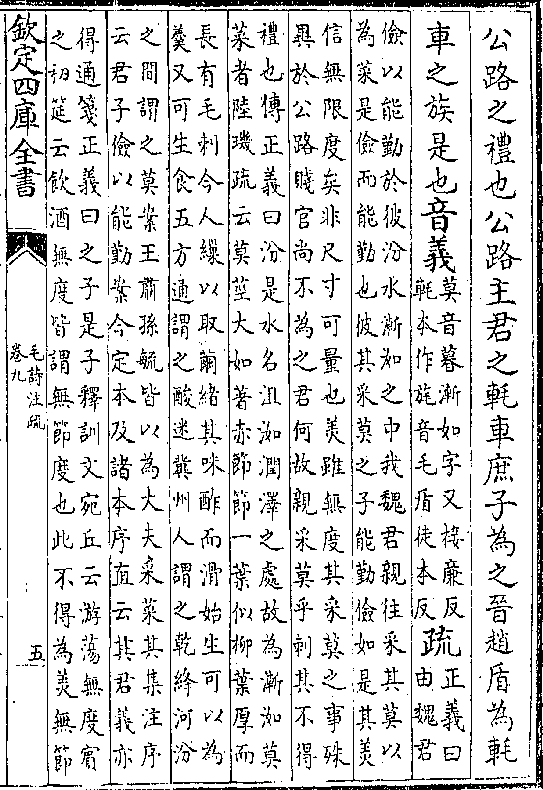 公路之禮也公路主君之軞車庶子為之晉趙盾為軞
車之族是也音義莫音暮漸如字又接廉反
軞本作旄音毛盾徒本反疏正義曰
由魏君
儉以能勤於彼汾水漸洳之中我魏君親往采其莫以
為菜是儉而能勤也彼其采莫之子能勤儉如是其羙
信無限度矣非尺寸可量也羙雖無度其采莫之事殊
異於公路賤官尚不為之君何故親采莫乎刺其不得
禮也傳正義曰汾是水名沮洳潤澤之處故為漸洳莫
菜者陸璣疏云莫莖大如著赤節節一葉似柳葉厚而
長有毛刺今人繅以取繭緒其味酢而滑始生可以為
羹又可生食五方通謂之酸迷冀州人謂之乾絳河汾
之間謂之莫案王肅孫毓皆以為大夫采菜其集注序
云君子儉以能勤案今定本及諸本序直云其君義亦
得通箋正義曰之子是子釋訓文宛丘云游蕩無度賓
之初筵云飲酒無度皆謂無節度也此不得為羙無節
欽定四庫全書
毛詩注疏
卷九
五